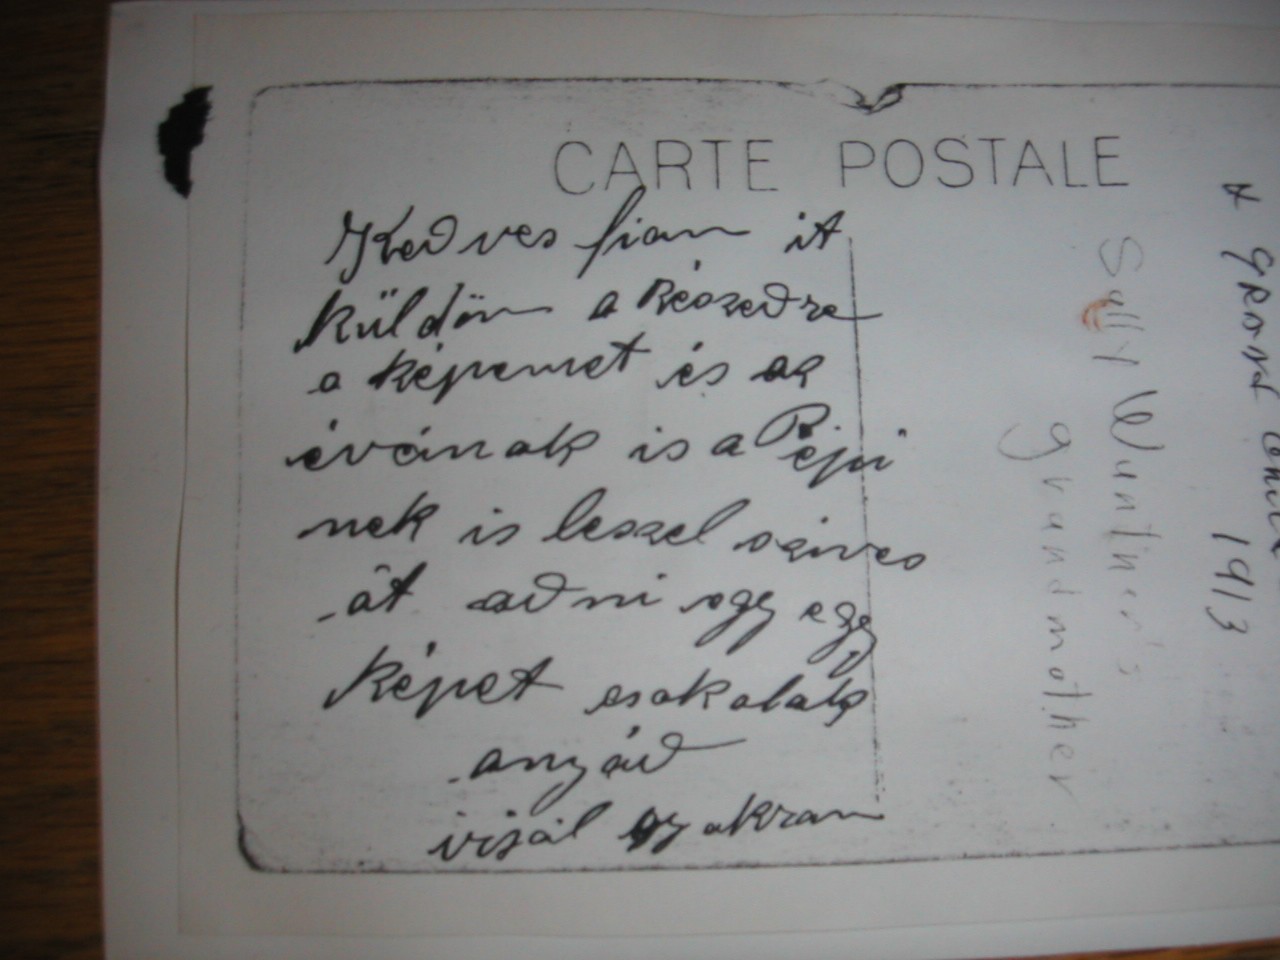 CARTE POSTALE
Kedves fiam it
küldöm a Részedre
a képemet és az
évának is a Pepi
nek is leszel szives
át adni egy egy
képet csokolak
anyád
irjál gyakran
Sally Wuntner's
grandmother
& grand
1913